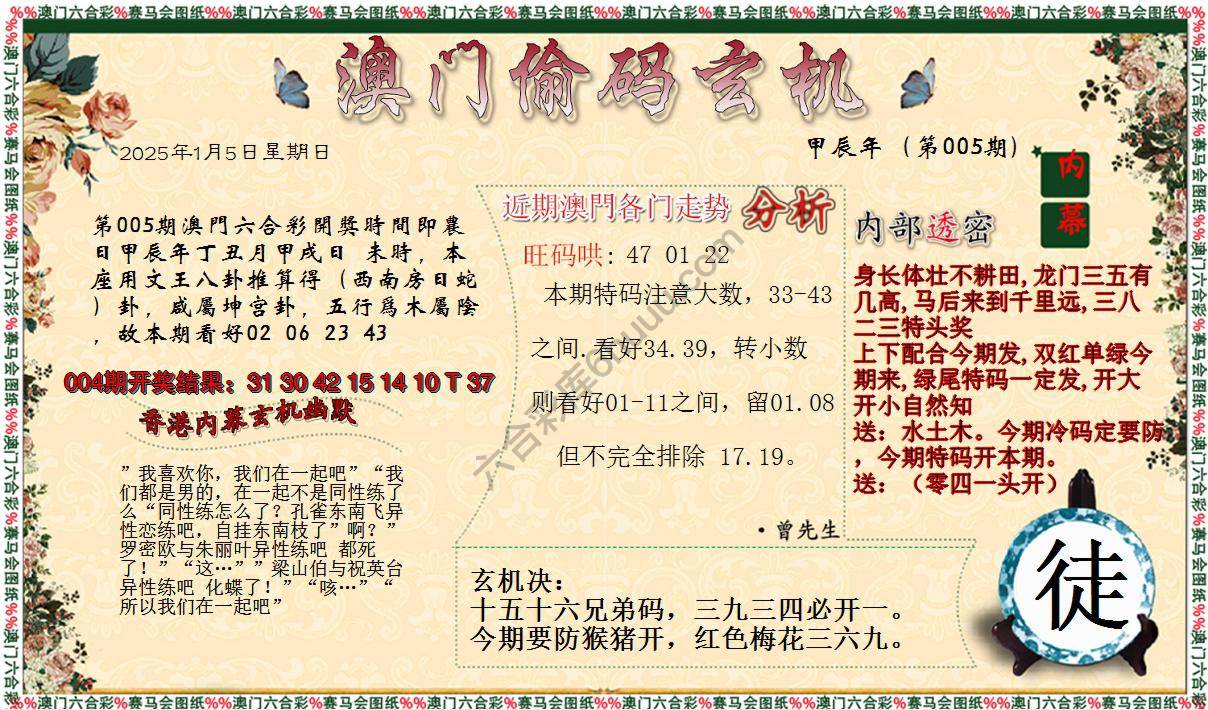 %%澳门六合彩%赛马会图纸%%澳门六合彩%赛马会图纸%%澳门六合彩%赛马会图纸%%澳门六合彩%赛马会图纸%%澳门六合彩%赛马会图纸%%澳门六合彩%赛马会图纸%%
澳门偷码玄机
2025年1月5日星期日
甲辰年（第005期）
内
幕
第005期澳門六合彩開獎時間即農
日甲辰年丁丑月甲戌日 未時，本
座用文王八卦推算得（西南房日蛇
）卦，咸屬坤宫卦，五行爲木屬陰
，故本期看好02 06 23 43
004期开奖结果：31 30 42 15 14 10 T 37
香港内幕玄机幽默
”我喜欢你，我们在一起吧”“我
们都是男的，在一起不是同性练了
么“同性练怎么了？孔雀东南飞异
性恋练吧，自挂东南枝了”啊？”
罗密欧与朱丽叶异性练吧 都死
了！”“这…””梁山伯与祝英台
异性练吧 化蝶了！”“咳…”“
所以我们在一起吧”
近期澳門各门走势 分析
旺码哄：47 01 22
本期特码注意大数，33-43
之间.看好34.39，转小数
则看好01-11之间，留01.08
但不完全排除 17.19。
·曾先生
内部透密
身长体壮不耕田,龙门三五有
几高,马后来到千里远,三八
二三特头奖
上下配合今期发,双红单绿今
期来,绿尾特码一定发,开大
开小自然知
送：水土木。今期冷码定要防
，今期特码开本期。
送：（零四一头开）
玄机决：
十五十六兄弟码，三九三四必开一。
今期要防猴猪开，红色梅花三六九。
徒